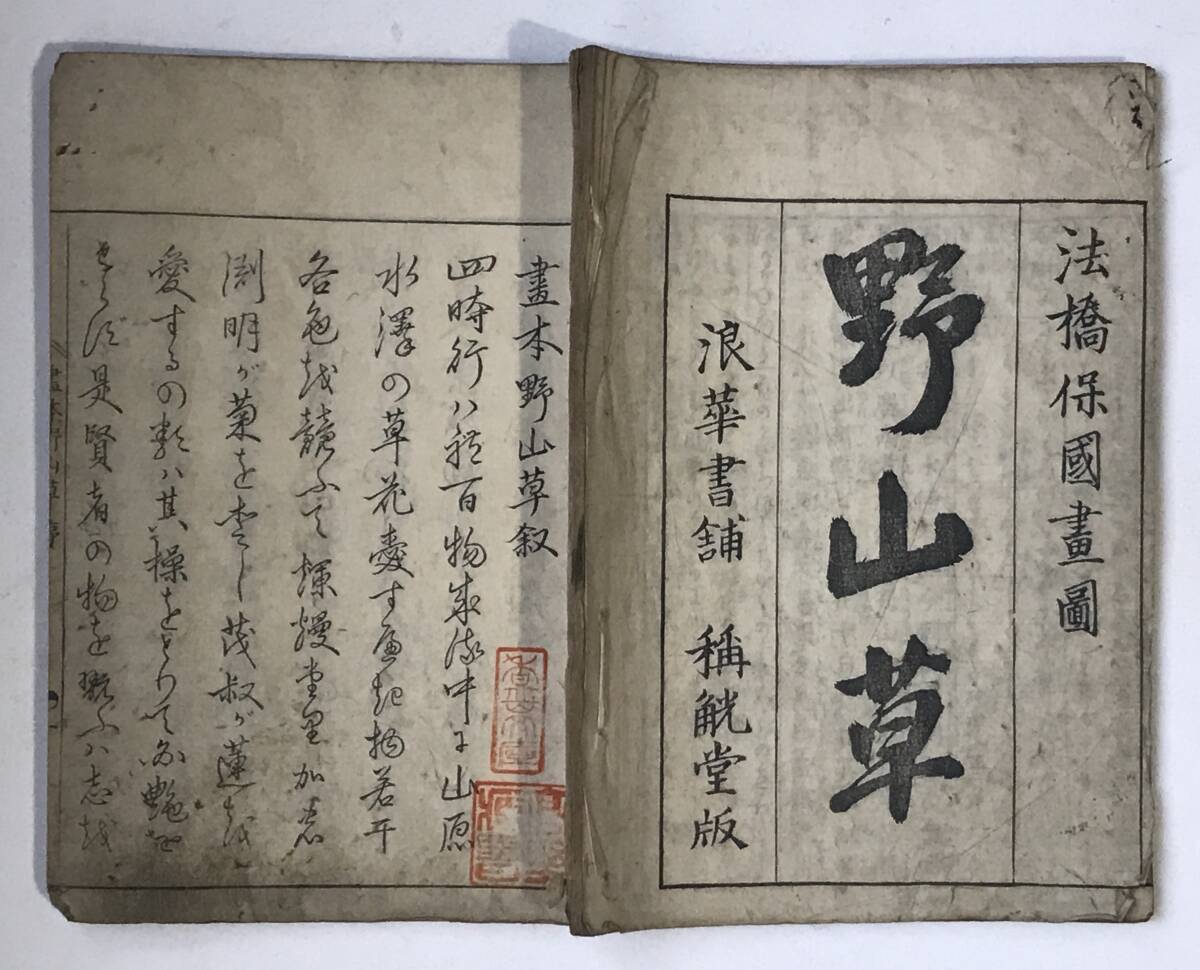 法橋保國畫圖
野山草
浪華書舗 稱觥堂版
畫本野山草叙
四時行ハ禮百物成流中に山原
水澤の草花愛す可起物若干
各色越競ふて爛熳堂里加志
渕明が菊を愛し茂叔が蓮越
愛するの類ハ其操をとりて不艶を
是賢者の物を翫ふハ志越